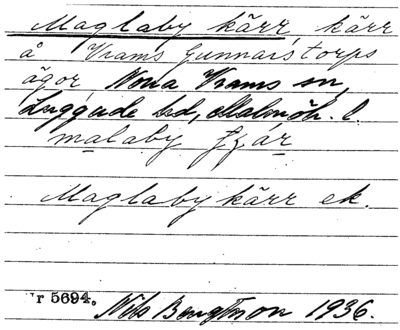 Maglaby kärr, kärr
å Vrams Gunnarstorps
ägor Norra Vrams sn,
Luggude hd, Malmöh. l.
malaby kjär
Maglaby kärr ek.
Nr 5694. Nils Bengtsson 1936.